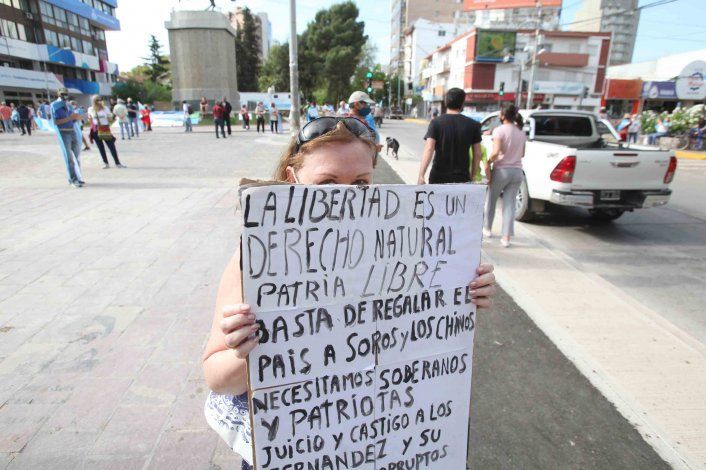 LA LIBERTAD ES UN
DERECHO NATURAL
PATRIA LIBRE
BASTA DE REGALAR EL
PAIS A SOROS Y LOS CHINOS
NECESITAMOS SOBERANOS
Y PATRIOTAS
JUICIO Y CASTIGO A LOS
FERNANDEZ Y SU